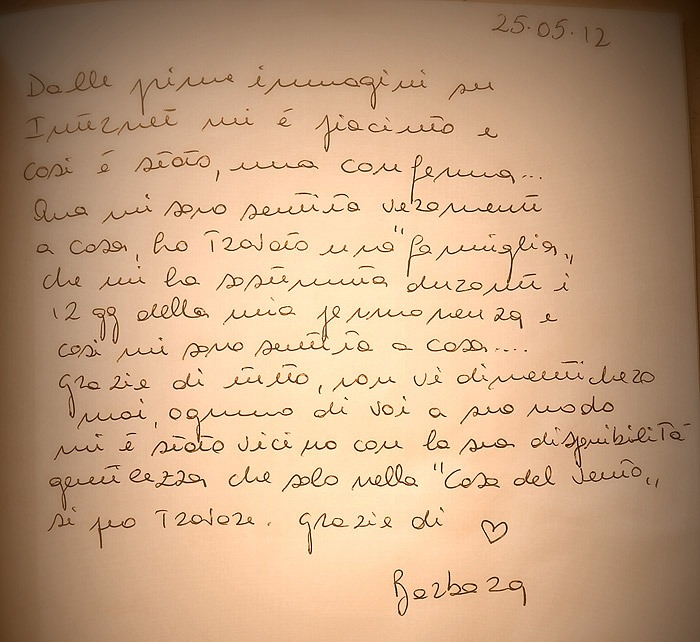 25.05.12
Dalle prime immagini su
Internet mi é piaciuto e
così é stato, una conferma...
Qua mi sono sentita veramente
a casa, ho trovato una "famiglia„
che mi ha sostenuta durante i
12 gg della mia permanenza e
così mi sono sentita a casa....
grazie di tutto, non vi dimenticherò
mai, ognuno di voi a suo modo
mi é stato vicino con la sua disponibilità
gentilezza che solo nella "Casa del Vento„
si può trovare. grazie di ♡
Barbara